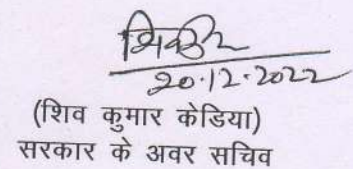 20.12.2022
(शिव कुमार केडिया)
सरकार के अवर सचिव